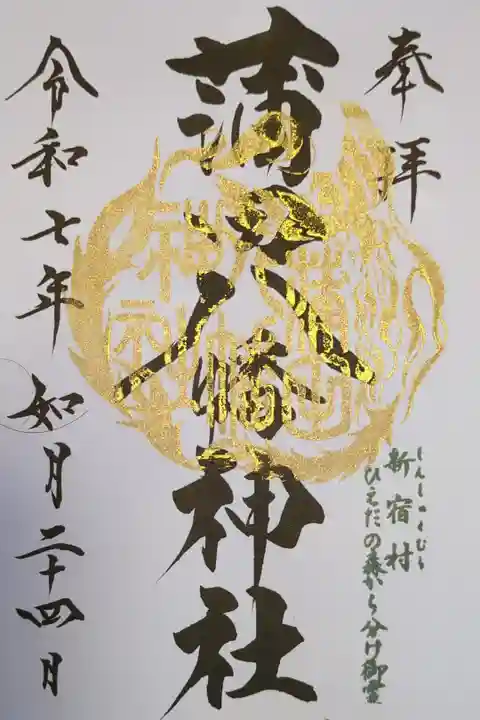 奉拝
新宿村
しんしゅくむら
ひえだの森から分け御霊
蒲田八幡神社
令和七年 如月二十四月